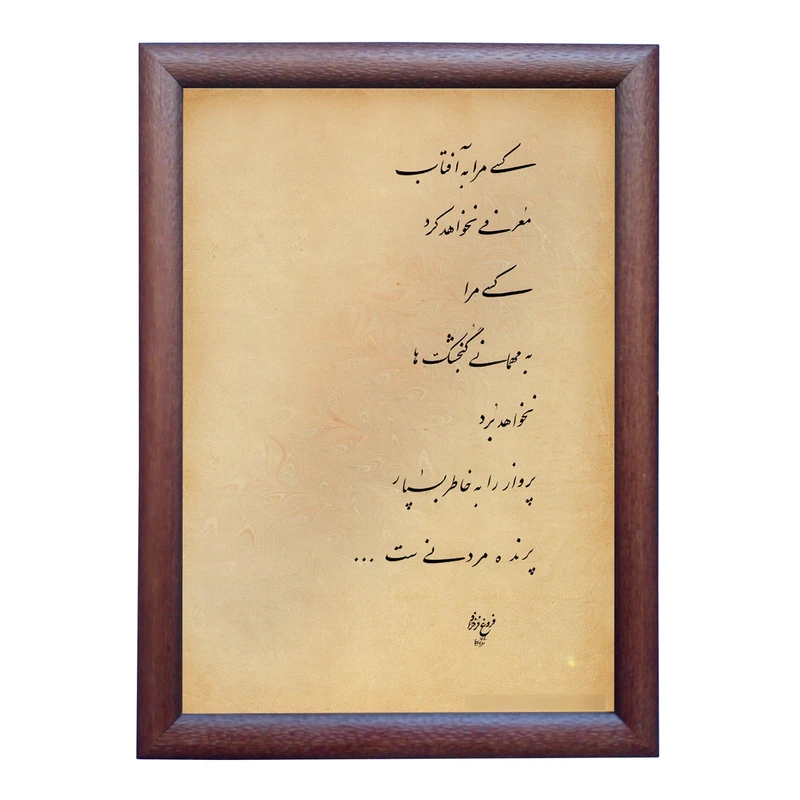 کسی مرا به آفتاب
معرفی نخواهد کرد
کسی مرا
به مهمانی گنجشک‌ها
نخواهد بُرد
پرواز را به خاطر بسپار
پرنده مردنی ست ...
فروغ فرخزاد